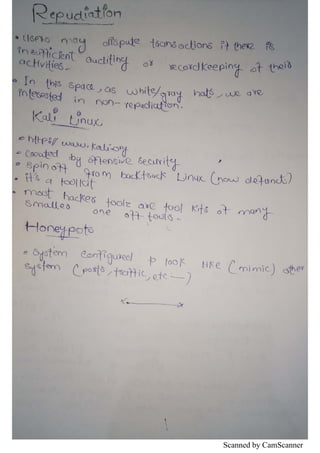 Repudiation
• Users may dispute transactions if there is
insufficient auditing or recordkeeping of their
activities.
• In this space, as white/gray hats, we are
interested in non-repudiation.
Kali Linux
• https// www.kali.org
• Created by offensive security
• spin off from backtrack Linux (now defanct)
• it's a toolkit
• most hacker toolz are tool kits of many
smaller one off tools.
Honeypots
• System configured to look like (mimic) other
system (ports, traffic, etc —)
Scanned by CamScanner